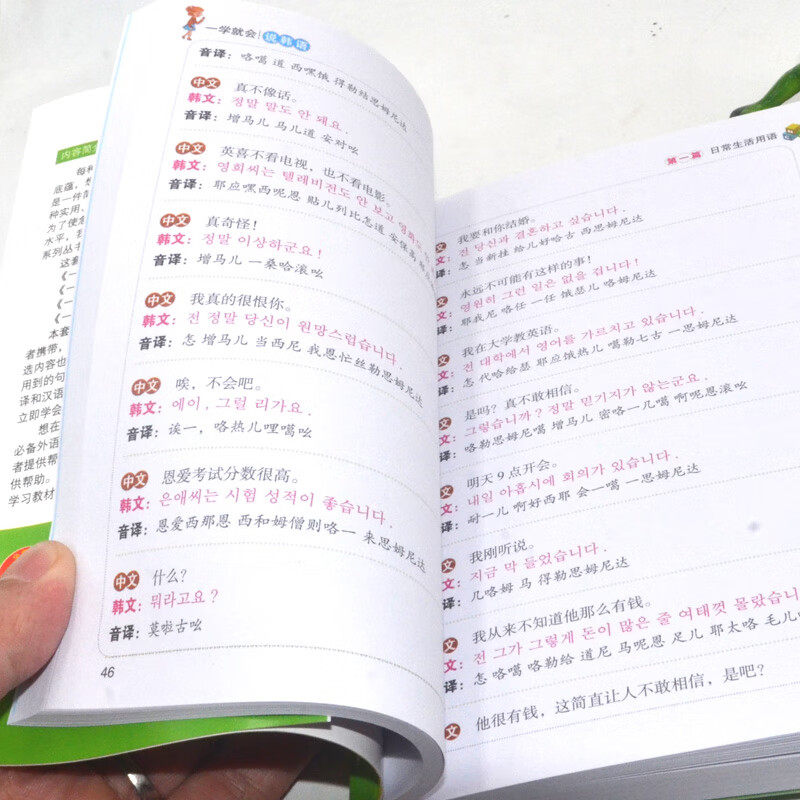 一学就会 说韩语
音译：咯噶 道 西嘿饿 得勒结思姆尼达
中文 真不像话。
韩文：정말 말도 안 돼요.
音译：增马儿 马儿道 安对吆
中文 英喜不看电视，也不看电影。
韩文：영화씨는 텔레비전도 안 보고
音译：耶应嘿西呢恩 贴儿列比怎道
中文 真奇怪！
韩文：정말 이상하군요!
音译：增马儿 一桑哈滚吆
中文 我真的很恨你。
韩文：전 정말 당신이 원망스럽습니다.
音译：怎 增马儿 当西尼 我恩忙丝勒思姆尼达
中文 唉，不会吧。
韩文：에이, 그럴 리가요.
音译：诶一，咯热儿哩噶吆
中文 恩爱考试分数很高。
韩文：은애씨는 시험 성적이 좋습니다.
音译：恩爱西那恩 西和姆僧则咯一 来思姆尼达
中文 什么？
韩文：뭐라고요?
音译：莫啦古吆
46
第一篇 日常生活用语
文 我要和你结婚。
文：전 당신과 결혼하고 싶습니다.
译：怎 当新挂 给儿好哈古 西思姆尼达
永远不可能有这样的事！
文：영원히 그런 일은 없을 겁니다!
译：耶我尼 咯任 一任 饿瑟儿 咯姆尼达
文 我在大学教英语。
文：전 대학에서 영어를 가르치고 있습니다.
译：怎 代哈给瑟 耶应饿热儿 噶勒七古 一思姆尼达
文 是吗？真不敢相信。
文：그렇습니까? 정말 믿기지가 않는군요.
译：咯勒思姆尼噶 增马儿 密咯一几噶 啊呢恩滚吆
文 明天9点开会。
文：내일 아홉시에 회의가 있습니다.
译：耐一儿 啊好西耶 会一噶 一思姆尼达
文 我刚听说。
文：지금 막 들었습니다.
译：几咯姆 马 得勒思姆尼达
文 我从来不知道他那么有钱。
文：전 그가 그렇게 돈이 많은 줄 여태껏 몰랐습니
译：怎 咯噶 咯勒给 道尼 马呢恩 足儿 耶太咯 毛儿
文 他很有钱，这简直让人不敢相信，是吧？
内容简
每
底蕴，想
是一件简
种实用、
为了使您
水平，我
系列丛书
这套
《一
《一
《一
《一
本套
者携带，
选内容也
用到的句
译和汉语
立即学会
想在
必备外语
者提供帮
供帮助。
学习教材